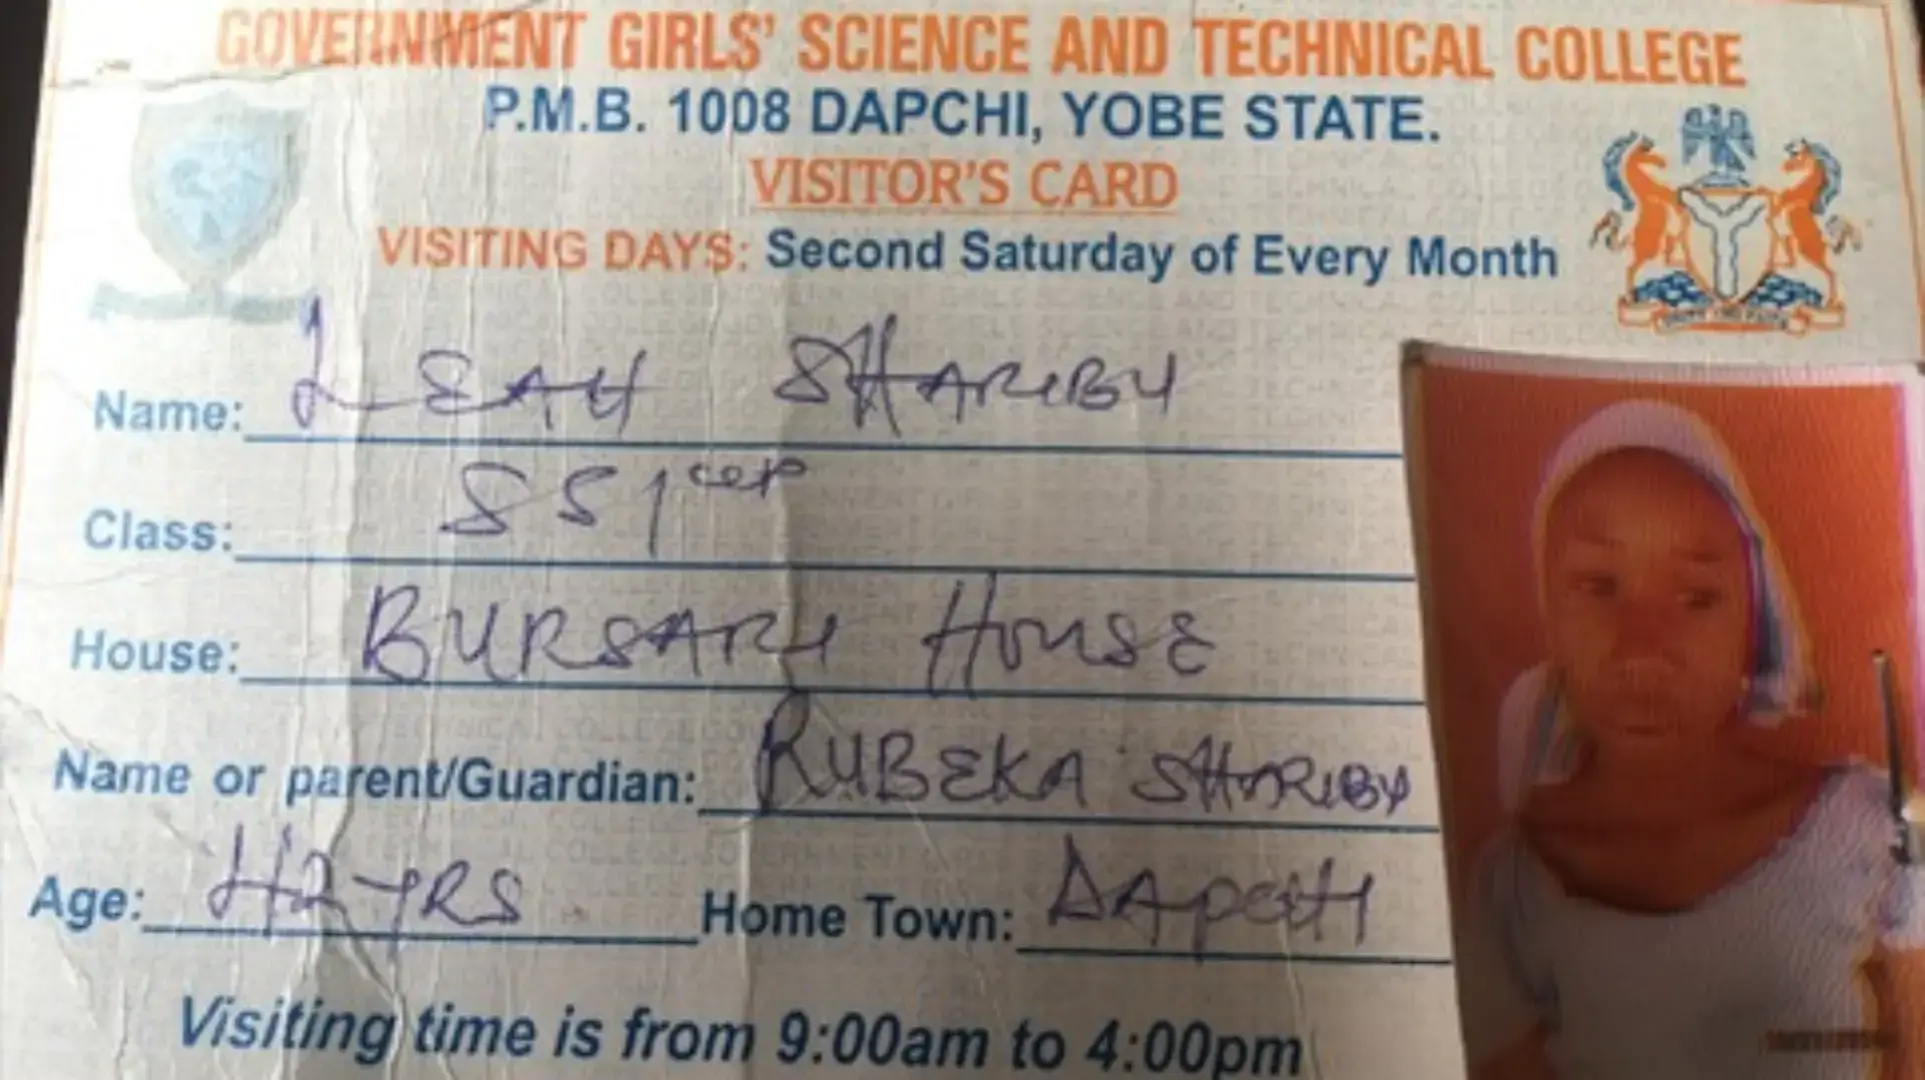 GOVERNMENT GIRLS' SCIENCE AND TECHNICAL COLLEGE
P.M.B. 1008 DAPCHI, YOBE STATE.
VISITOR'S CARD
VISITING DAYS: Second Saturday of Every Month
Name: LEAH SHARIBU
Class: SS1
House: BURSARI HOUSE
Name or parent/Guardian: RUBEKA SHARIBU
Age: 42 YRS Home Town: DAPCHI
Visiting time is from 9:00am to 4:00pm